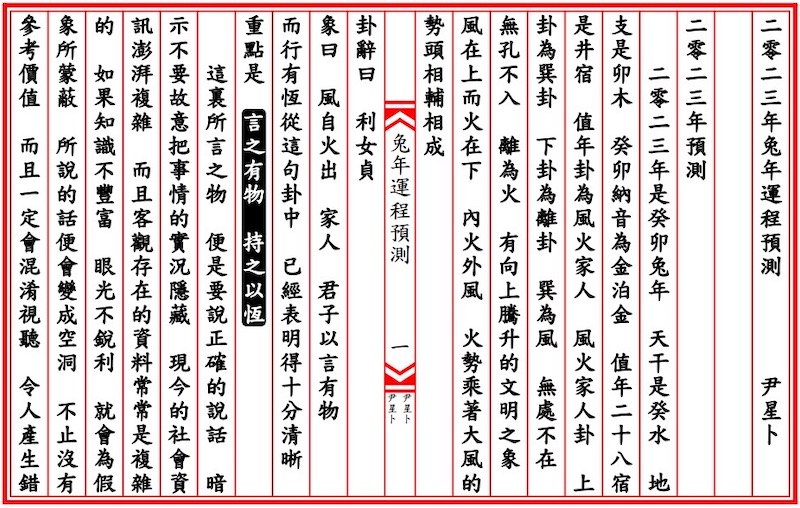 二零二三年兔年運程預測　　　尹星卜
二零二三年預測
　二零二三年是癸卯兔年　天干是癸水　地
支是卯木　癸卯納音為金泊金　值年二十八宿
是井宿　值年卦為風火家人　風火家人卦　上
卦為巽卦　下卦為離卦　巽為風　無處不在
無孔不入　離為火　有向上騰升的文明之象
風在上而火在下　內火外風　火勢乘著大風的
勢頭相輔相成
兔年運程預測　一　尹星卜　尹星卜
卦辭曰　利女貞
象曰　風自火出　家人　君子以言有物
而行有恆從這句卦中　已經表明得十分清晰
重點是　言之有物　持之以恆
　這裏所言之物　便是要說正確的說話　暗
示不要故意把事情的實況隱藏　現今的社會資
訊澎湃複雜　而且客觀存在的資料常常是複雜
的　如果知識不豐富　眼光不銳利　就會為假
象所蒙蔽　所說的話便會變成空洞　不止沒有
參考價值　而且一定會混淆視聽　令人產生錯